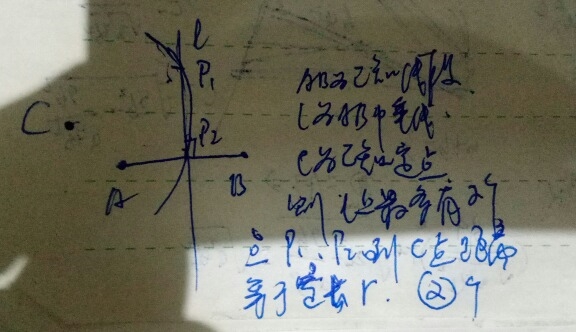 l
P₁
C
P₂
A
B
AB为已知线段.
l为AB中垂线.
C为已知定点
则l上最多有2个
点P₁、P₂到C点距离
等于定长r. ②个